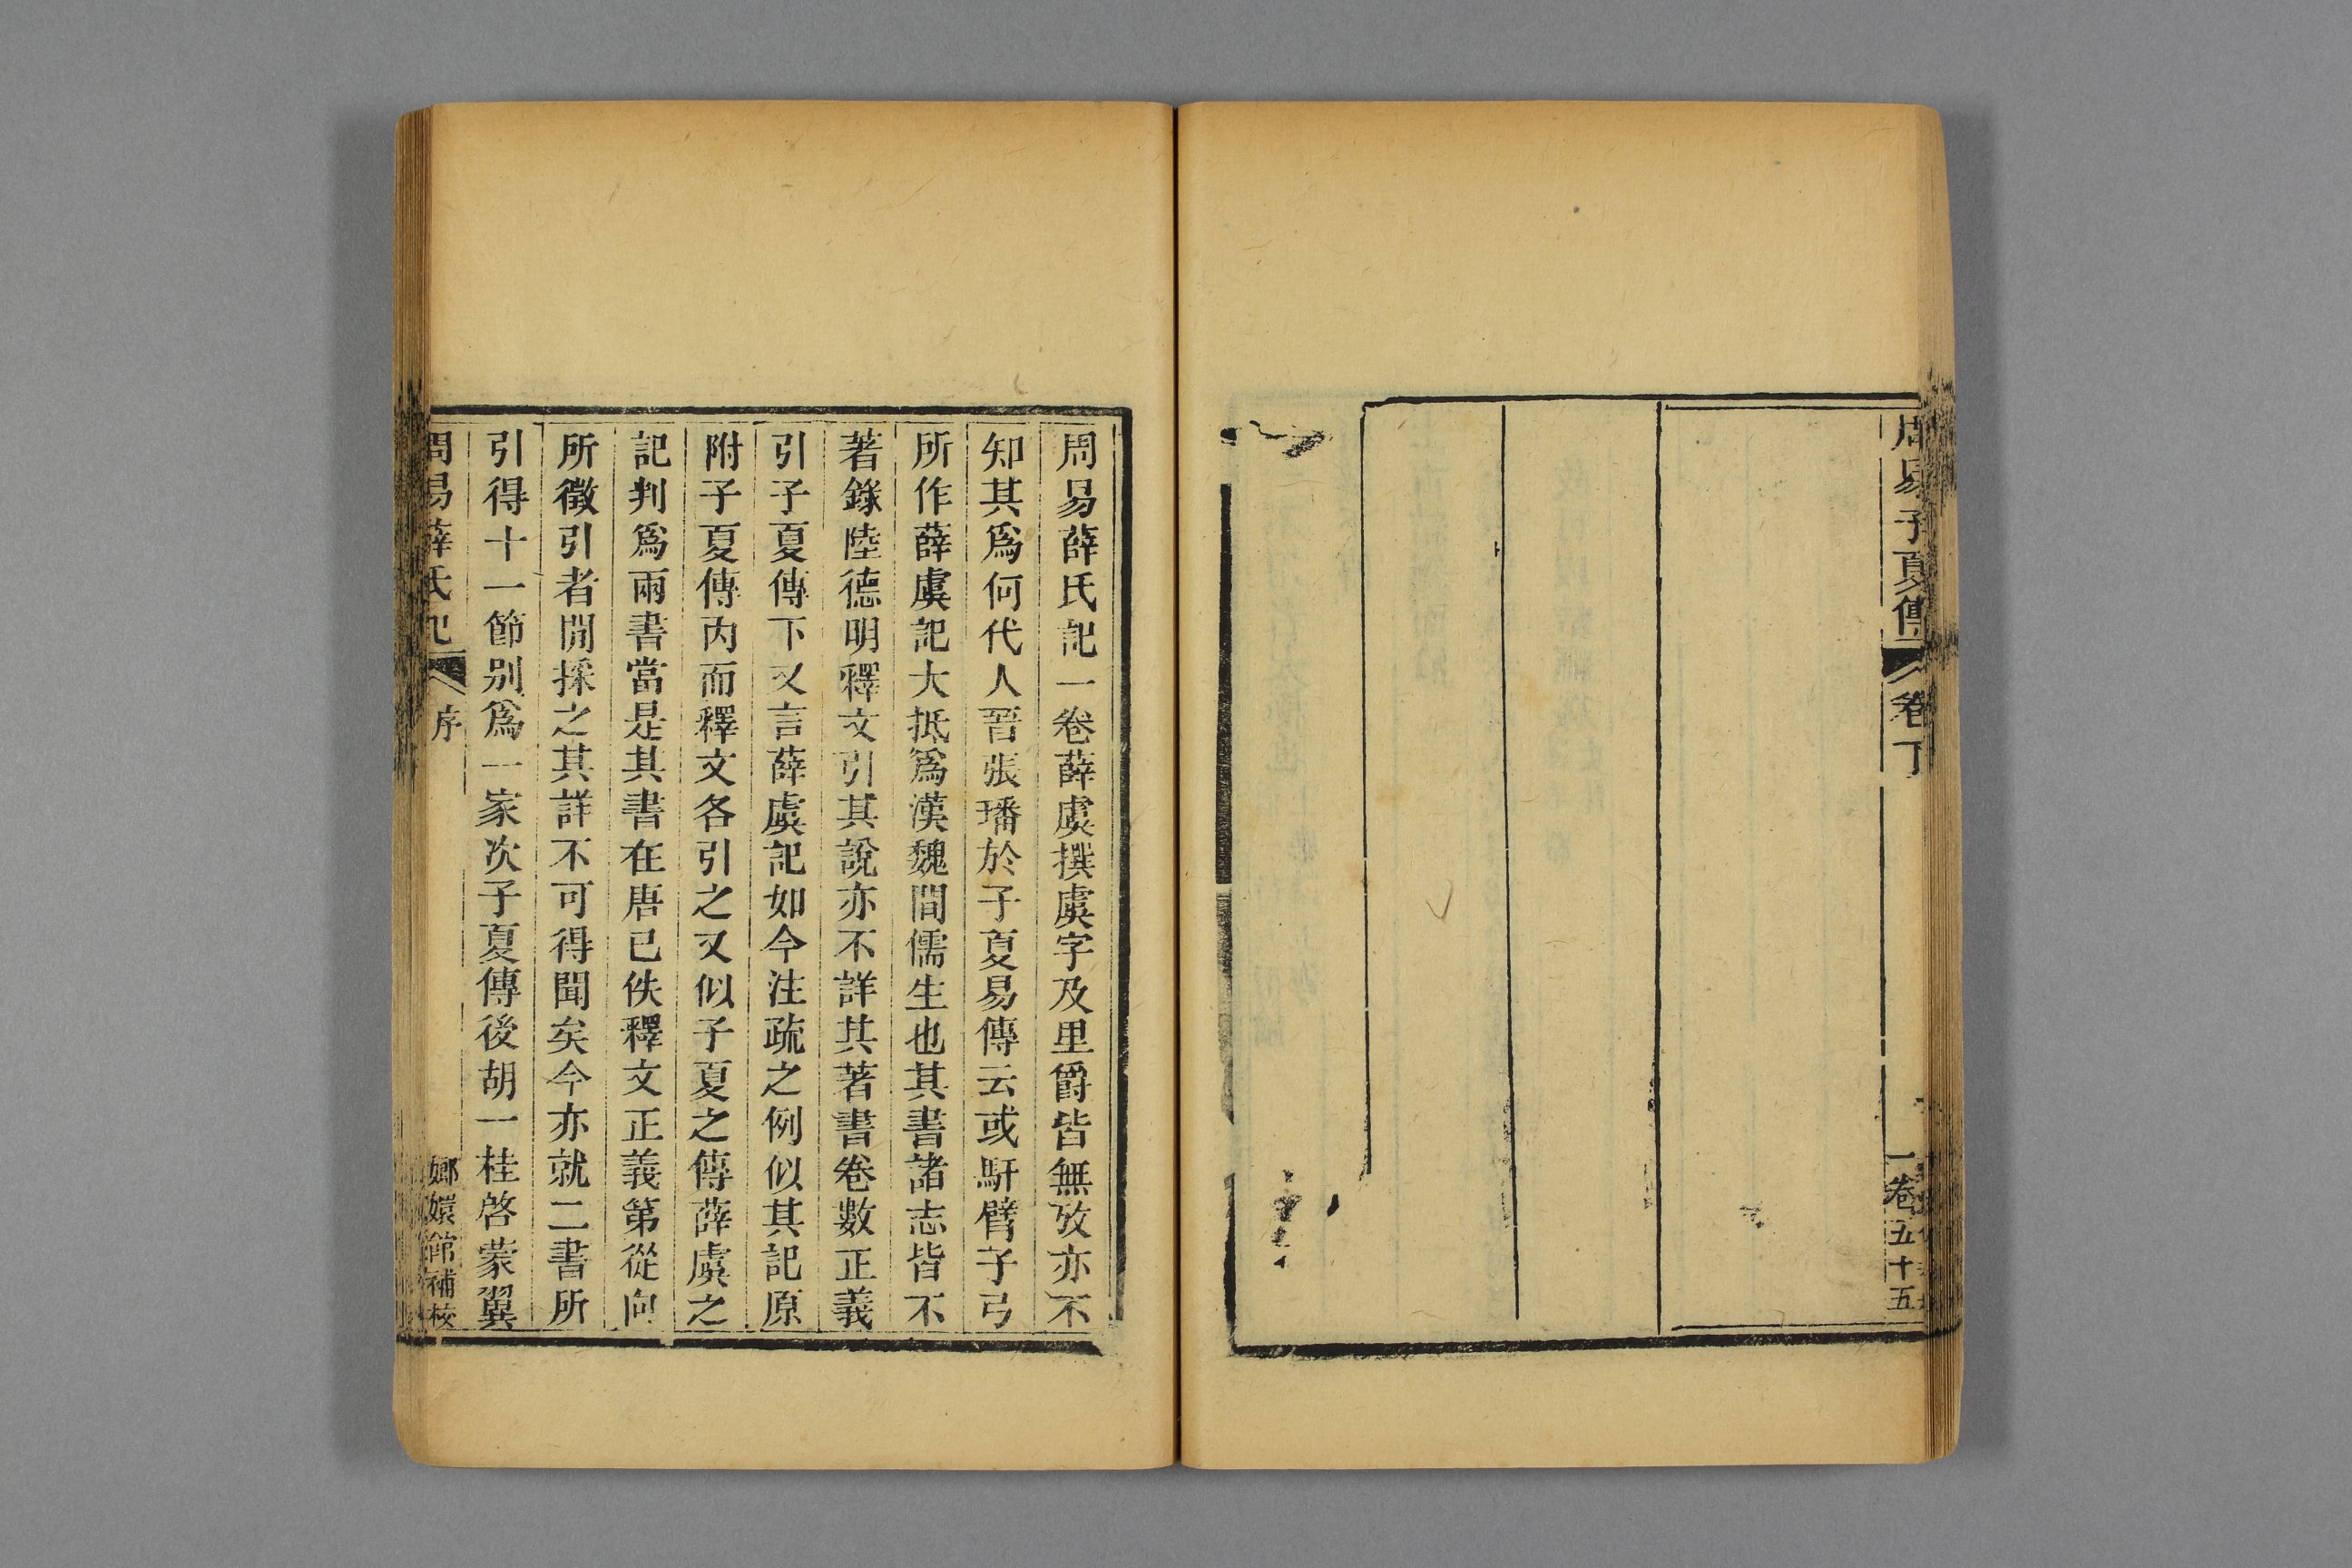 周易子夏傳
卷下
卷五十五
周易薛氏記一卷薛虞撰虞字及里爵皆無攷亦不
知其爲何代人晉張璠於子夏易傳云或馯臂子弓
所作薛虞記大抵爲漢魏間儒生也其書諸志皆不
著錄陸德明釋文引其說亦不詳其著書卷數正義
引子夏傳下又言薛虞記如今注疏之例似其記原
附子夏傳内而釋文各引之又似子夏之傳薛虞之
記判爲兩書當是其書在唐已佚釋文正義第從向
所徵引者閒採之其詳不可得聞矣今亦就二書所
引得十一節别爲一家次子夏傳後胡一桂啓蒙翼
周易薛氏記
序
嫏嬛館補校